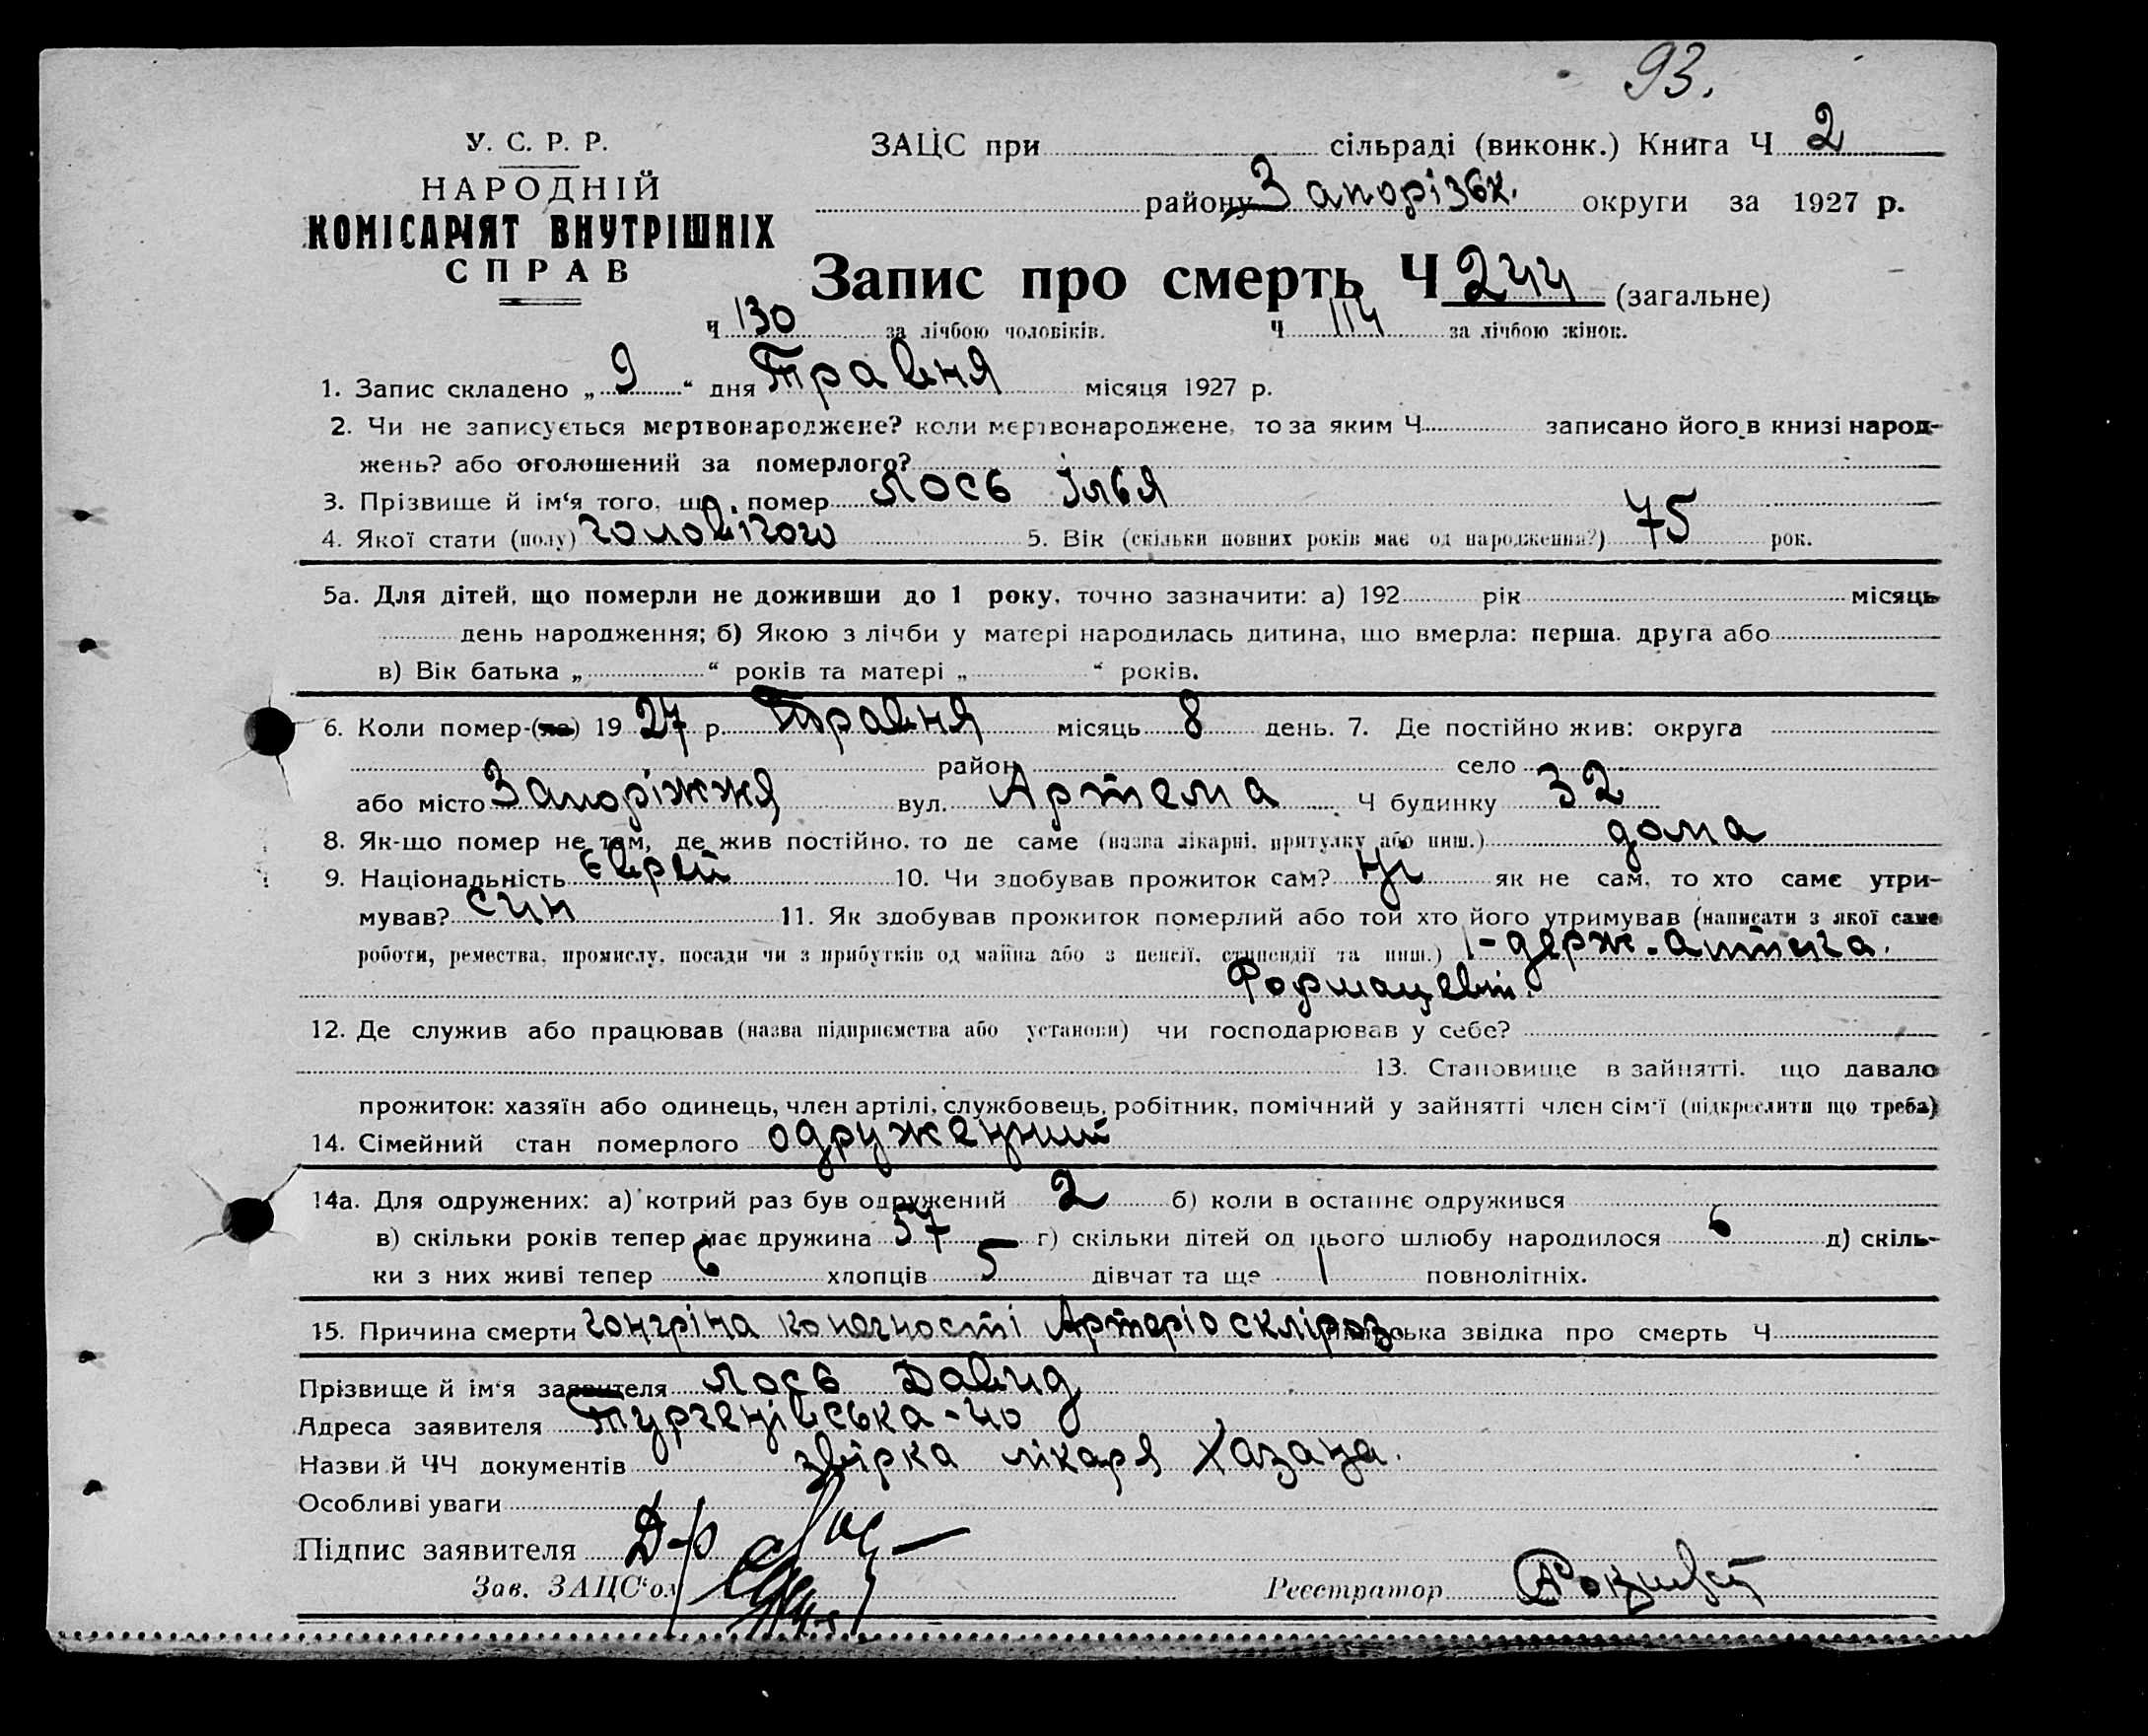 93.
У. С. Р. Р.
НАРОДНІЙ
КОМІСАРІЯТ ВНУТРІШНІХ
СПРАВ
ЗАЦС при сільраді (виконк.) Книга Ч 2
району Запорізьк. округи за 1927 р.
Запис про смерть Ч 244 (загальне)
Ч 130 за лічбою чоловіків. Ч 114 за лічбою жінок.
1. Запис складено „ 9 “ дня Травня місяця 1927 р.
2. Чи не записується мертвонароджене? коли мертвонароджене, то за яким Ч записано його в книзі народ-
жень? або оголошений за померлого?
3. Прізвище й ім‘я того, що помер Лось Ілья
4. Якої стати (полу) чоловічого 5. Вік (скільки повних років має од народження?) 75 рок.
5а. Для дітей, що померли не доживши до 1 року, точно зазначити: а) 192 рік місяць
день народження; б) Якою з лічби у матері народилась дитина, що вмерла: перша, друга або
в) Вік батька „ “ років та матері „ “ років.
6. Коли помер-(ла) 1927 р. Травня місяць 8 день. 7. Де постійно жив: округа
район село
або місто Запоріжжя вул. Артема Ч будинку 32
8. Як-що помер не там, де жив постійно, то де саме (назва лікарні, притулку або инш.) дома
9. Національність Єврей 10. Чи здобував прожиток сам? Ні як не сам, то хто саме утри-
мував? син 11. Як здобував прожиток померлий або той хто його утримував (написати з якої саме
роботи, ремества, промислу, посади чи з прибутків од майна або з пенсії, стипендії та инш.) 1-держ. аптича.
Формацевт.
12. Де служив або працював (назва підприємства або установи) чи господарював у себе?
13. Становище в зайнятті, що давало
прожиток: хазяїн або одинець, член артілі, службовець, робітник, помічний у зайнятті член сім‘ї (підкреслити що треба)
14. Сімейний стан померлого одружений
14а. Для одружених: а) котрий раз був одружений 2 б) коли в останнє одружився
в) скільки років тепер має дружина 57 г) скільки дітей од цього шлюбу народилося 6 д) скіль-
ки з них живі тепер 6 хлопців 5 дівчат та ще 1 повнолітніх.
15. Причина смерти гонгріна конечности Артеріосклироз. звідка про смерть Ч
Прізвище й ім‘я заявителя Лось Давид
Адреса заявителя Тургенівська-40
Назви й ЧЧ документів звірка лікаря Хазана.
Особливі уваги
Підпис заявителя Д-р
Зав. ЗАЦС‘ом Реєстратор